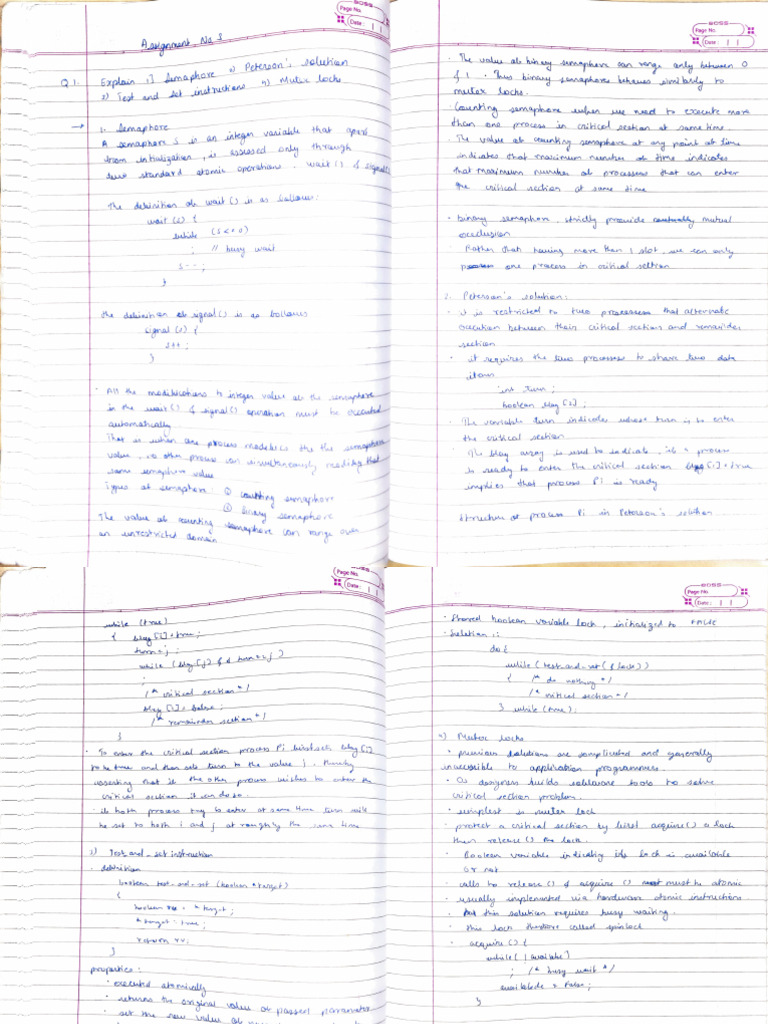 BOSS
Page No.
Date : | |
Assignment No 3
Q1. Explain 1] Semaphore 2) Peterson's solution
3) Test and Set instructions 4) Mutex locks.
→ 1. Semaphore
A semaphore S is an integer variable that apart
from initialization, is assessed only through
two standard atomic operations. wait() & signal()
The definition of wait() is as follows:
wait (S) {
while (S <= 0)
; // busy wait
S--;
}
the definition of signal() is as follows
signal (S) {
S++ ;
}
• All the modifications to integer value of the semaphore
in the wait() & signal() operation must be executed
automatically
That is when one process modifies the the semaphore
value, no other process can simultaneously modify that
same semaphore value
Types of semaphore: ① counting semaphore
② binary semaphore
The value of counting semaphore can range over
an unrestricted domain
BOSS
Page No.
Date : | |
• The value of binary semaphore can range only between 0
& 1. Thus binary semaphore behaves similarly to
mutex locks.
• Counting semaphore when we need to execute more
than one process in critical section at same time.
The value of counting semaphore at any point of time
indicates that maximum number of time indicates
that maximum number of processes that can enter
the critical section at same time
• binary semaphore, strictly provide mutual
occlusion
• Rather than having more than 1 slot, we can only
one process in critical section
2. Peterson's solution:
• it is restricted to two processes that alternate
execution between their critical section and remainder
section
• it requires the two processes to share two data
items
int turn;
boolean flag [2];
• The variable turn indicates whose turn is to enter
the critical section
The flag array is used to indicate, if a process
is ready to enter the critical section flag [i] = true
implies that process Pi is ready
Structure of process Pi in Peterson's solution
Page No.
Date : | |
while (true)
{ flag [i] = true;
turn = j ;
while (flag [j] && turn = = j )
;
/* critical section */
flag [i] = false;
/* remainder section */
}
• To enter the critical section process Pi first sets flag [i]
to be true and then sets turn to the value j, thereby
asserting that if the other process wishes to enter the
critical section it can do so.
• if both process try to enter at same time turn will
be set to both i and j at roughly the same time
3) Test_and_set instruction
• definition
boolean test_and_set (boolean *target)
{
boolean rv = *target ;
*target = true;
return rv;
}
properties :
• executed atomically
• returns the original value of passed parameter
• set the new value of
BOSS
Page No.
Date : | |
• Shared boolean variable lock, initialized to FALSE
• Solution ::
do {
while (test_and_set (& lock))
{ /* do nothing */
/* critical section */
} while (true);
4) Mutex locks
• previous solutions are complicated and generally
inaccessible to application programmers.
• OS designers builds software tools to solve
critical section problem.
• simplest is mutex lock
• protect a critical section by first acquire() a lock
then release() lock.
• Boolean variable indicating if lock is available
or not
• calls to release() & acquire() must be atomic
• usually implemented via hardware atomic instruction.
• But this solution requires busy waiting.
• this lock therefore called spinlock
• acquire () {
while( ! available)
; /* busy wait */
available = False;
}